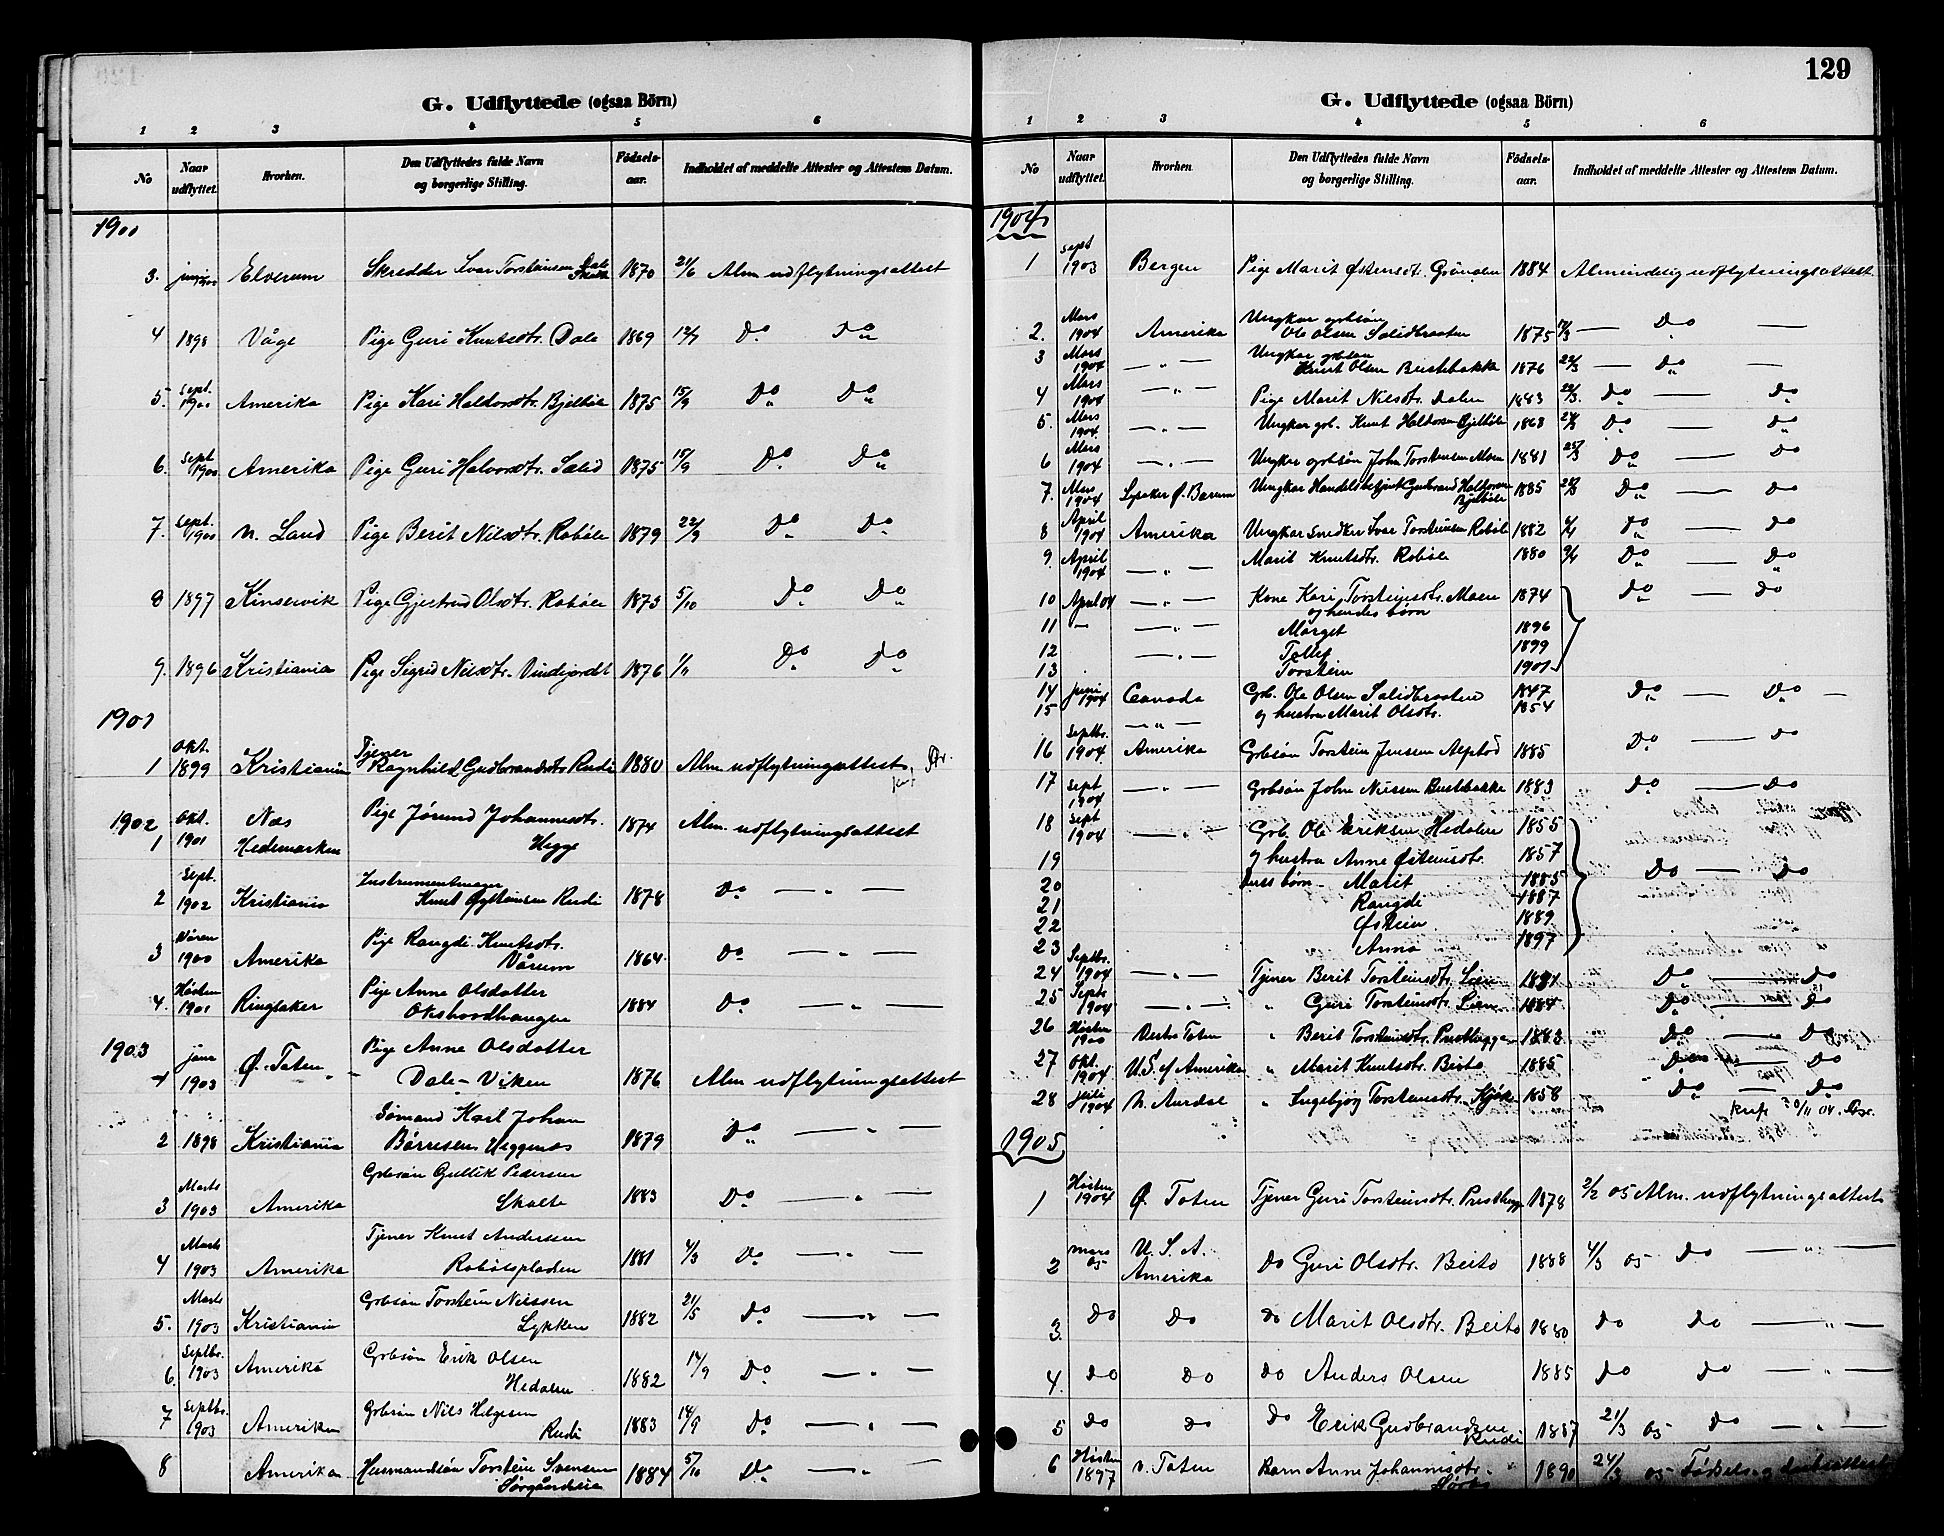 G. Udflyttede (ogsaa Börn)
1 2 3 4 5 6
No Naar udflyttet. Hvorhen. Den Udflyttedes fulde Navn og borgerlige Stilling. Födselsaar. Indholdet af meddelte Attester og Attestens Datum.
1900
3. Elverum Skredder Ivar Torsteinsen 1870 21/6 Alm udflytningsattest
4 1898 Våge Pige Guri Knutsdtr. Dale 1869 12/7 Do Do
5. Sept. 1900 Amerika Pige Kari Haldorsdtr. Bjelbøle 1875 15/9 Do Do
6. Sept 1900 Amerika Pige Guri Halvorsdtr. Sælid 1875 15/9 Do Do
7. Sept. 1900 N. Land Pige Berit Nilsdtr. Robøle 1879 22/9 Do Do
8 1897 Kinservik Pige Gjertrud Olsdtr. Robøle 1873 5/10 Do Do
9. 1896 Kristiania Pige Sigrid Nilsdtr. Vindejordet 1876 1/11 Do Do
1901
1 Okt. 1899 Kristiania Tjener Ragnhild Gudbrandsdtr Rudi 1880 Alm udflytningsattest
1902
1 Okt. 1901 Næs Hedemarken Pige Jørund Johannesdtr. Hegge 1874 Alm. udflytningsattest
2 Sept. 1902 Kristiania Instrumentmager Knut Øystensen Rudi 1878 Do — " —
3 Våren 1900 Amerika Pige Rangdi Knutsdtr. Vårum 1864 Do — " —
4. Hösten 1901 Ringsaker Pige Anne Olsdatter Okshovdhaugen 1884 Do — " —
1903
1 janr 1903 Ø. Toten Pige Anne Olsdatter Dale-Viken 1876 Alm udflytningsattest
2 1898 Kristiania Sömand Karl Johan Børresen Heggenes 1879 Do — " —
3 Marts 1903 Amerika Gbrsøn Gullik Pedersen Skolte 1883 Do — " —
4 Marts 1903 Amerika Tjener Knut Anderssen Robølspladsen 1881 4/3 Do — " —
5. Marts 1903 Kristiania Gbrsøn Torstein Nilssen Lykken 1882 21/5 Do — " —
6. Septbr. 1903 Amerika Gbrsøn Erik Olsen Hedalen 1882 14/9 Do — " —
7 Septbr. 1903 Amerika Gbrsøn Nils Helgesen Rudi 1883 14/9 Do — " —
8 Amerika Husmandssøn Torstein Svensen Sørgaardseie 1884 5/10 Do — " —
129
G. Udflyttede (ogsaa Börn)
1 2 3 4 5 6
No Naar udflyttet. Hvorhen. Den Udflyttedes fulde Navn og borgerlige Stilling. Födselsaar. Indholdet af meddelte Attester og Attestens Datum.
1904
1 Sept 1903 Bergen Pige Marit Østensdtr. Grönolen 1884 Almindelig udflytningsattest
2. Mars 1904 Amerika Ungkar gbrsøn Ole Olsen Salidbraaten 1875 — Do —
3 Mars 1904 — " — Ungkar gbrsøn Knut Olsen Beitebakke 1876 22/3 — Do —
4 Mars 1904 — " — Pige Marit Nilsdtr. Dalen 1883 22/3. Do — Do
5. Mars 1904. — " — Ungkar gb. Knut Haldorsen Bjelbøle 1868 Do — Do
6 Mars 1904 — " — Ungkar gbrsøn John Torsteinsen Moen 1881 25/3 Do — Do
7. Mars 1904 Lysaker Ø. Bærum Ungkar Handelsbetjent Gudbrand Haldorsen Bjelbøle 1885 Do — Do
8 April 1904 Amerika Ungkar Snedker Ivar Torsteinsen Robøle 1882 Do — Do
9. April 1904 — " — Marit Knutsdtr. Robøle 1880 9/4 Do — Do
10 April 04 — " — Kone Kari Torsteinsdtr. Moen 1874 Do — Do
og hendes børn
11 — — " — Marget 1896
12 — " — Tollef 1899
13 Torstein 1901
14 juni 1904 Canada Gb. Ole Olsen Salidbraaten 1847 Do — Do —
15 — " — og hustru Marit Olsdtr. 1854
16 Septbr. 1904 Amerika Gbrsøn Torstein Jensen Alpstød 1885 Do — Do
17 Sept 1904 — " — Gbrsøn John Nilssen Beitebakke 1883 Do — Do
18 Sept 1904 — " — Gb. Ole Eriksen Hedalen 1855
19 og hustru Anne Østensdtr. 1857 Do — Do
20 deres børn – Marit 1885
21 Rangdi 1887
22 Østein 1889
23 Anna 1897
24 Septbr. 1904 — " — Tjener Berit Torsteinsdtr. Lien 1881 Do — Do
25 Septr 1904 — " — " Guri Torsteinsdtr. Lien 1884 Do — Do
26 Hösten 1900 Vestre Toten " Berit Torsteinsdtr. Prestbygge 1883 Do — Do
27 Okt. 1904 U.S. of Amerika " Marit Knutsdtr. Beito 1885 Do — Do
28 Juli 1904 N. Aurdal " Ingebjørg Torsteinsdtr. Kjøk 1858 Do — Do
Knf 30/11 04.
1905
1 Hösten 1904 Ø. Toten Tjener Guri Torsteinsdtr. Prestbygge 1878 2/2 05 Alm. udflytningsattest
2 mars 05 U.S.A. Amerika Do Guri Olsdtr. Beito 1888 4/3 05 Do — " —
3. Do Do Do Marit Olsdtr. Beito 1880 Do Do — " —
4. Do Do Do Anders Olsen 1885 Do Do — " —
5 Do Do Do Erik Gudbrandsen Rudi 1887 21/3 05 Do — " —
6 Hösten 1897 v. Toten Barn Anne Johannesdtr. 1890 24/3 05 Fødsels- og daabsattest